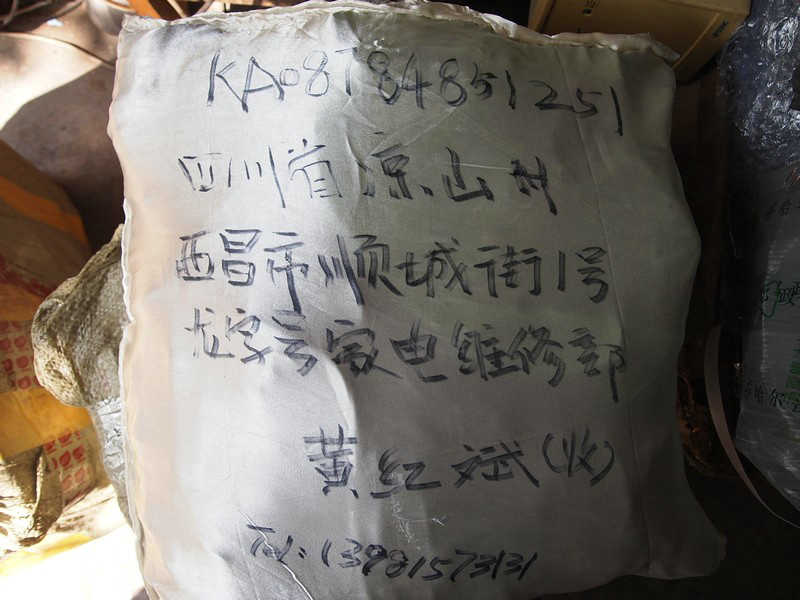 KA08784851251
四川省凉山州
西昌市顺城街1号
龙字号家电维修部
黄红斌(收)
Tel:13981573131